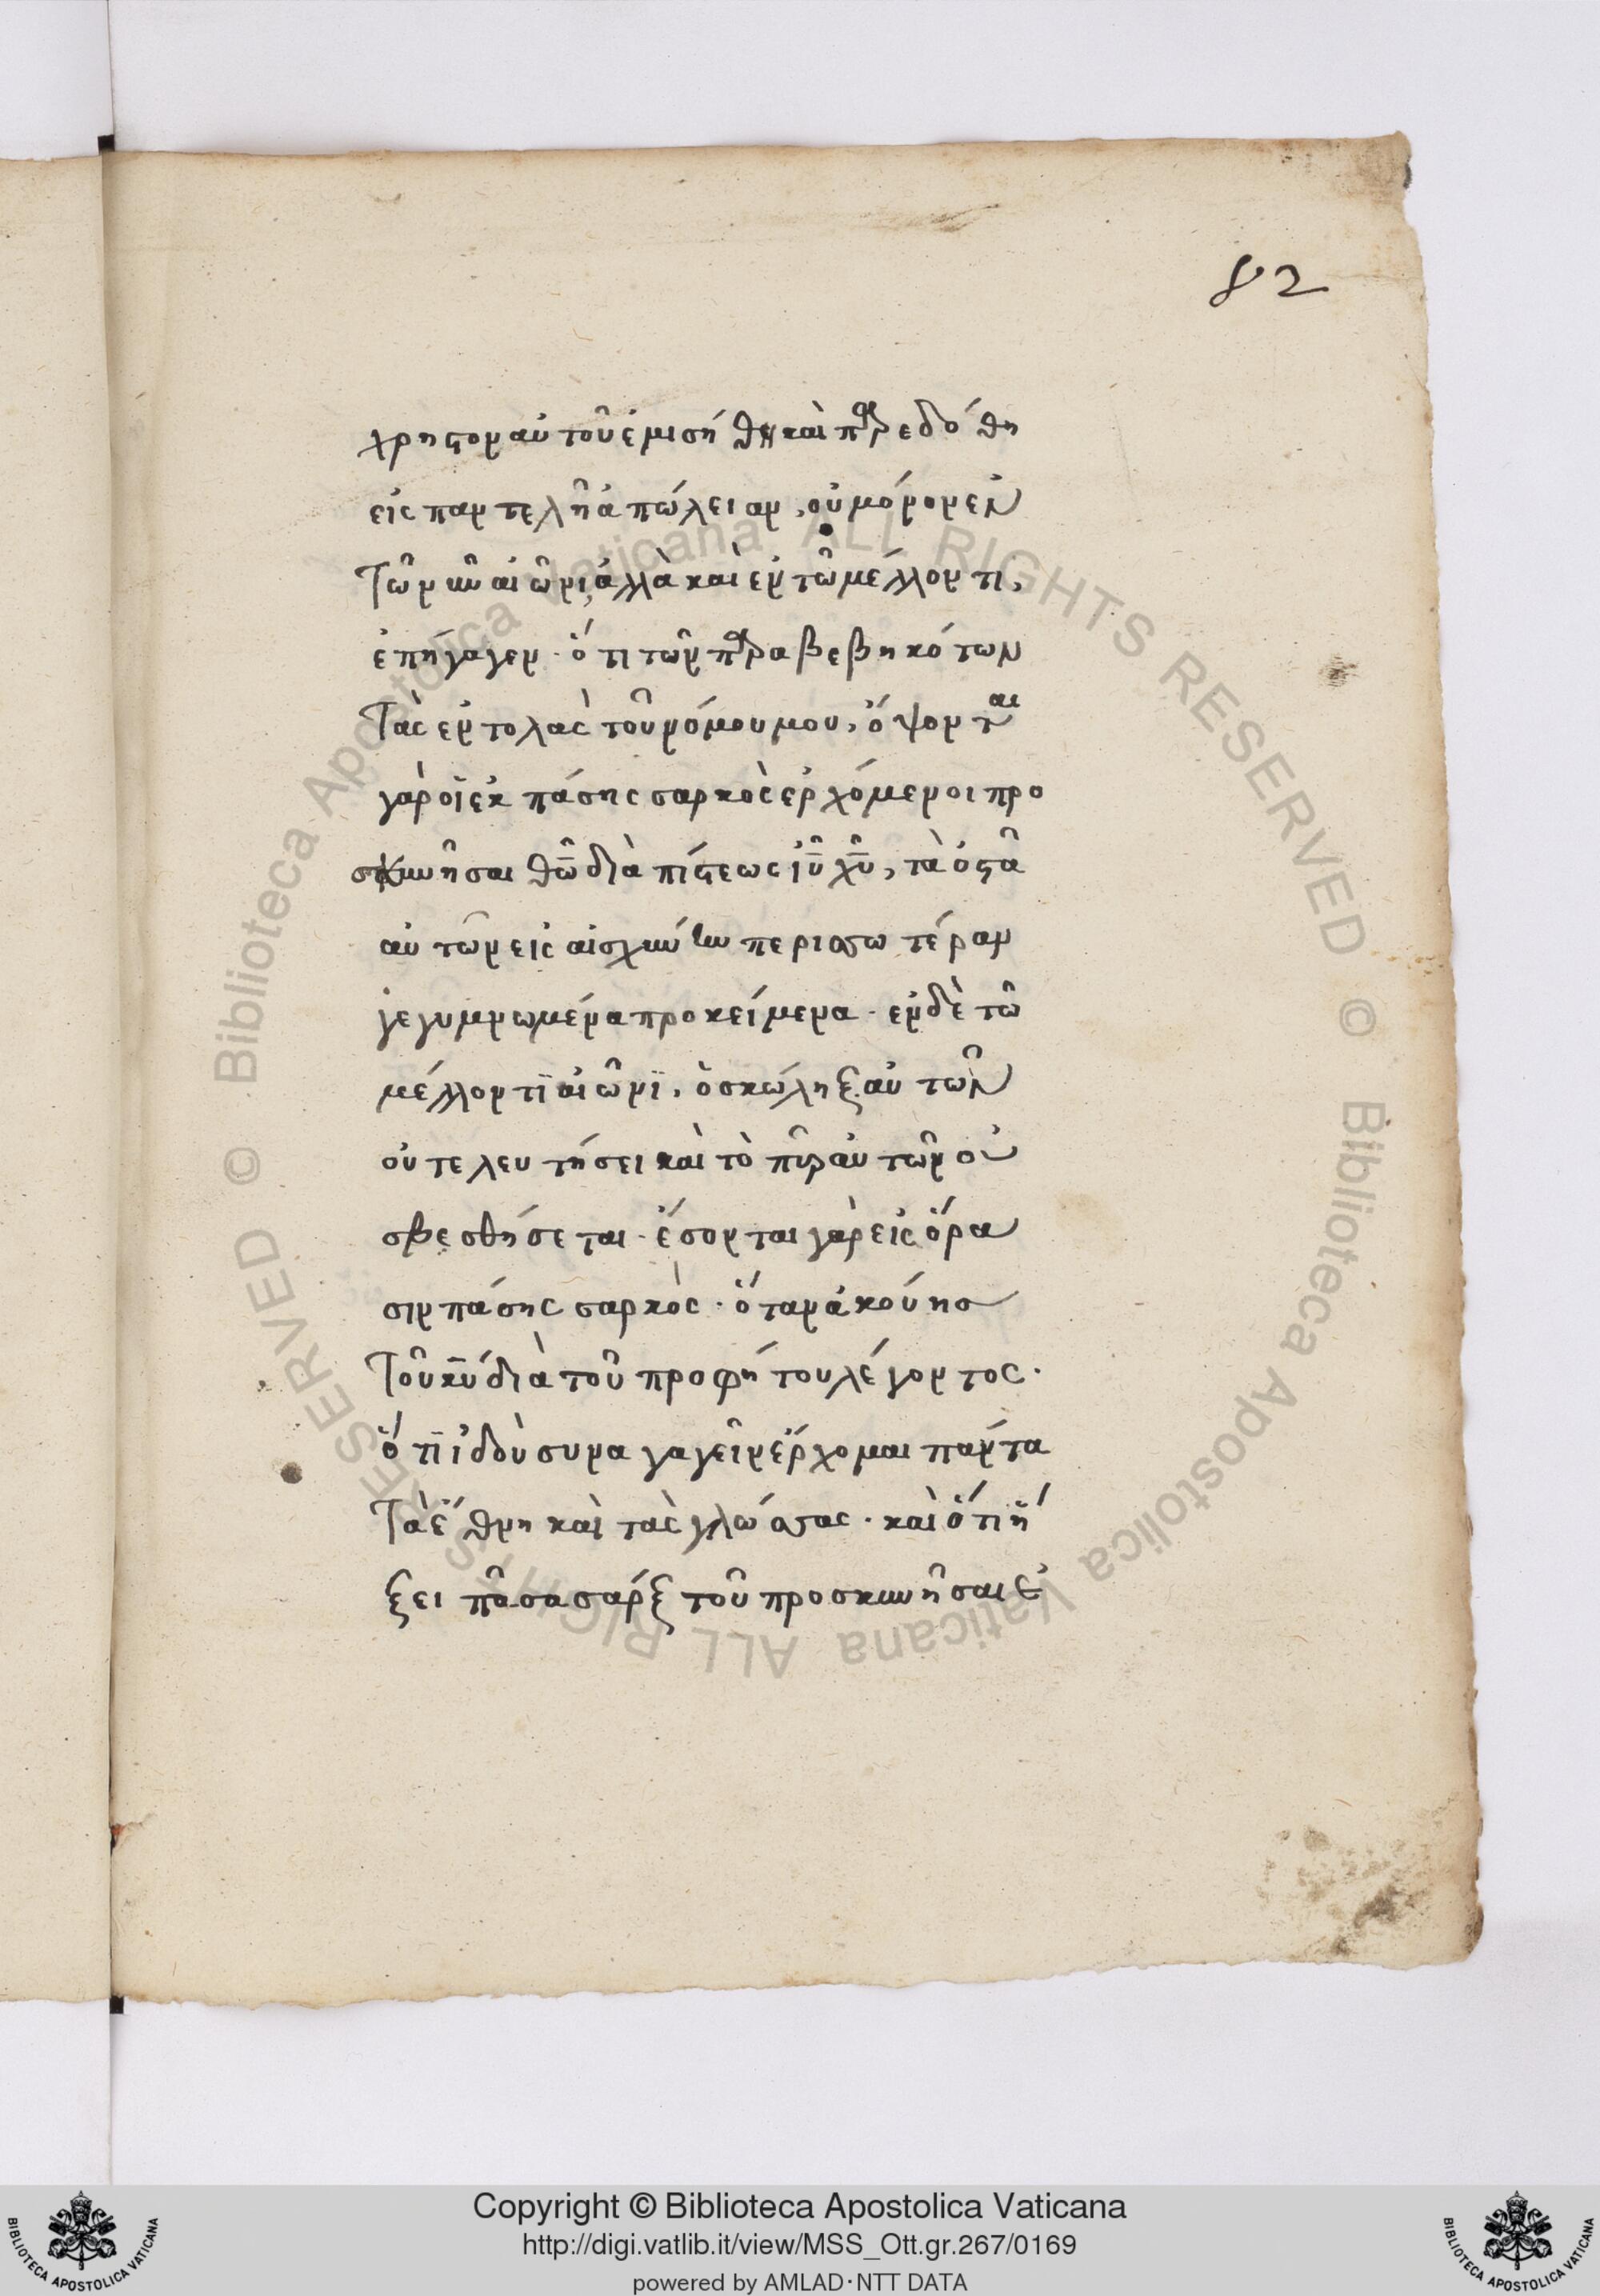 82
χρηστον αὐτοῦ ἐμισήθη καὶ παρεδόθη
εἰς παντελῆ ἀπώλειαν, οὐ μόνον ἐν
τῶ νῦν αἰῶνι, ἀλλὰ καὶ ἐν τῶ μέλλοντι,
ἐπήγαγεν · ὅτι τῶν παραβεβηκότων
Τὰς ἐντολὰς τοῦ νόμου μου, ὄψονται
γὰρ οἱ ἐκ πάσης σαρκὸς ἐρχόμενοι προ
σκυνῆσαι θῶ διὰ πίστεως ἰῦ χῦ, τὰ ὀστᾶ
αὐτῶν εἰς αἰσχύνην περισσωτέραν
γεγυμνωμένα προκείμενα · ἐν δὲ τῶ
μέλλοντϊ αἰῶνϊ, ὁ σκώληξ αὐτῶν
οὐ τελευτήσει καὶ τὸ πῦρ αὐτῶν οὐ
σβεσθήσεται · ἔσονται γὰρ εἰς ὅρα
σιν πάσης σαρκὸς · ὅταν ἀκούης
Τοῦ κῦ διὰ τοῦ προφήτου λέγοντος ·
ὅτϊ ἰδοὺ συναγαγεῖν ἔρχομαι πάντα
Τὰ ἔθνη καὶ τὰς γλώσσας · καὶ ὅτι ἥ
ξει πᾶσα σάρξ τοῦ προσκυνῆσαι ἐ
© Biblioteca Apostolica Vaticana ALL RIGHTS RESERVED © Biblioteca Apostolica Vaticana ALL RIGHTS RESERVED
Copyright © Biblioteca Apostolica Vaticana
http://digi.vatlib.it/view/MSS_Ott.gr.267/0169
powered by AMLAD·NTT DATA
BIBLIOTECA APOSTOLICA VATICANA
BIBLIOTECA APOSTOLICA VATICANA